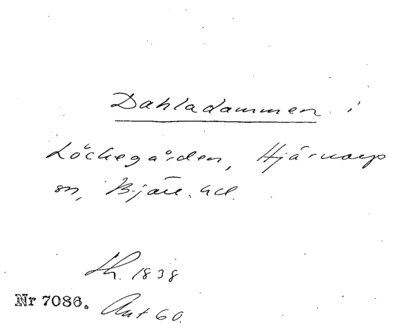 Dahladammen i
Löckegården, Hjärnarp
sn, Bjäre hd.
Lh. 1838
Nr 7086. Ant 60.